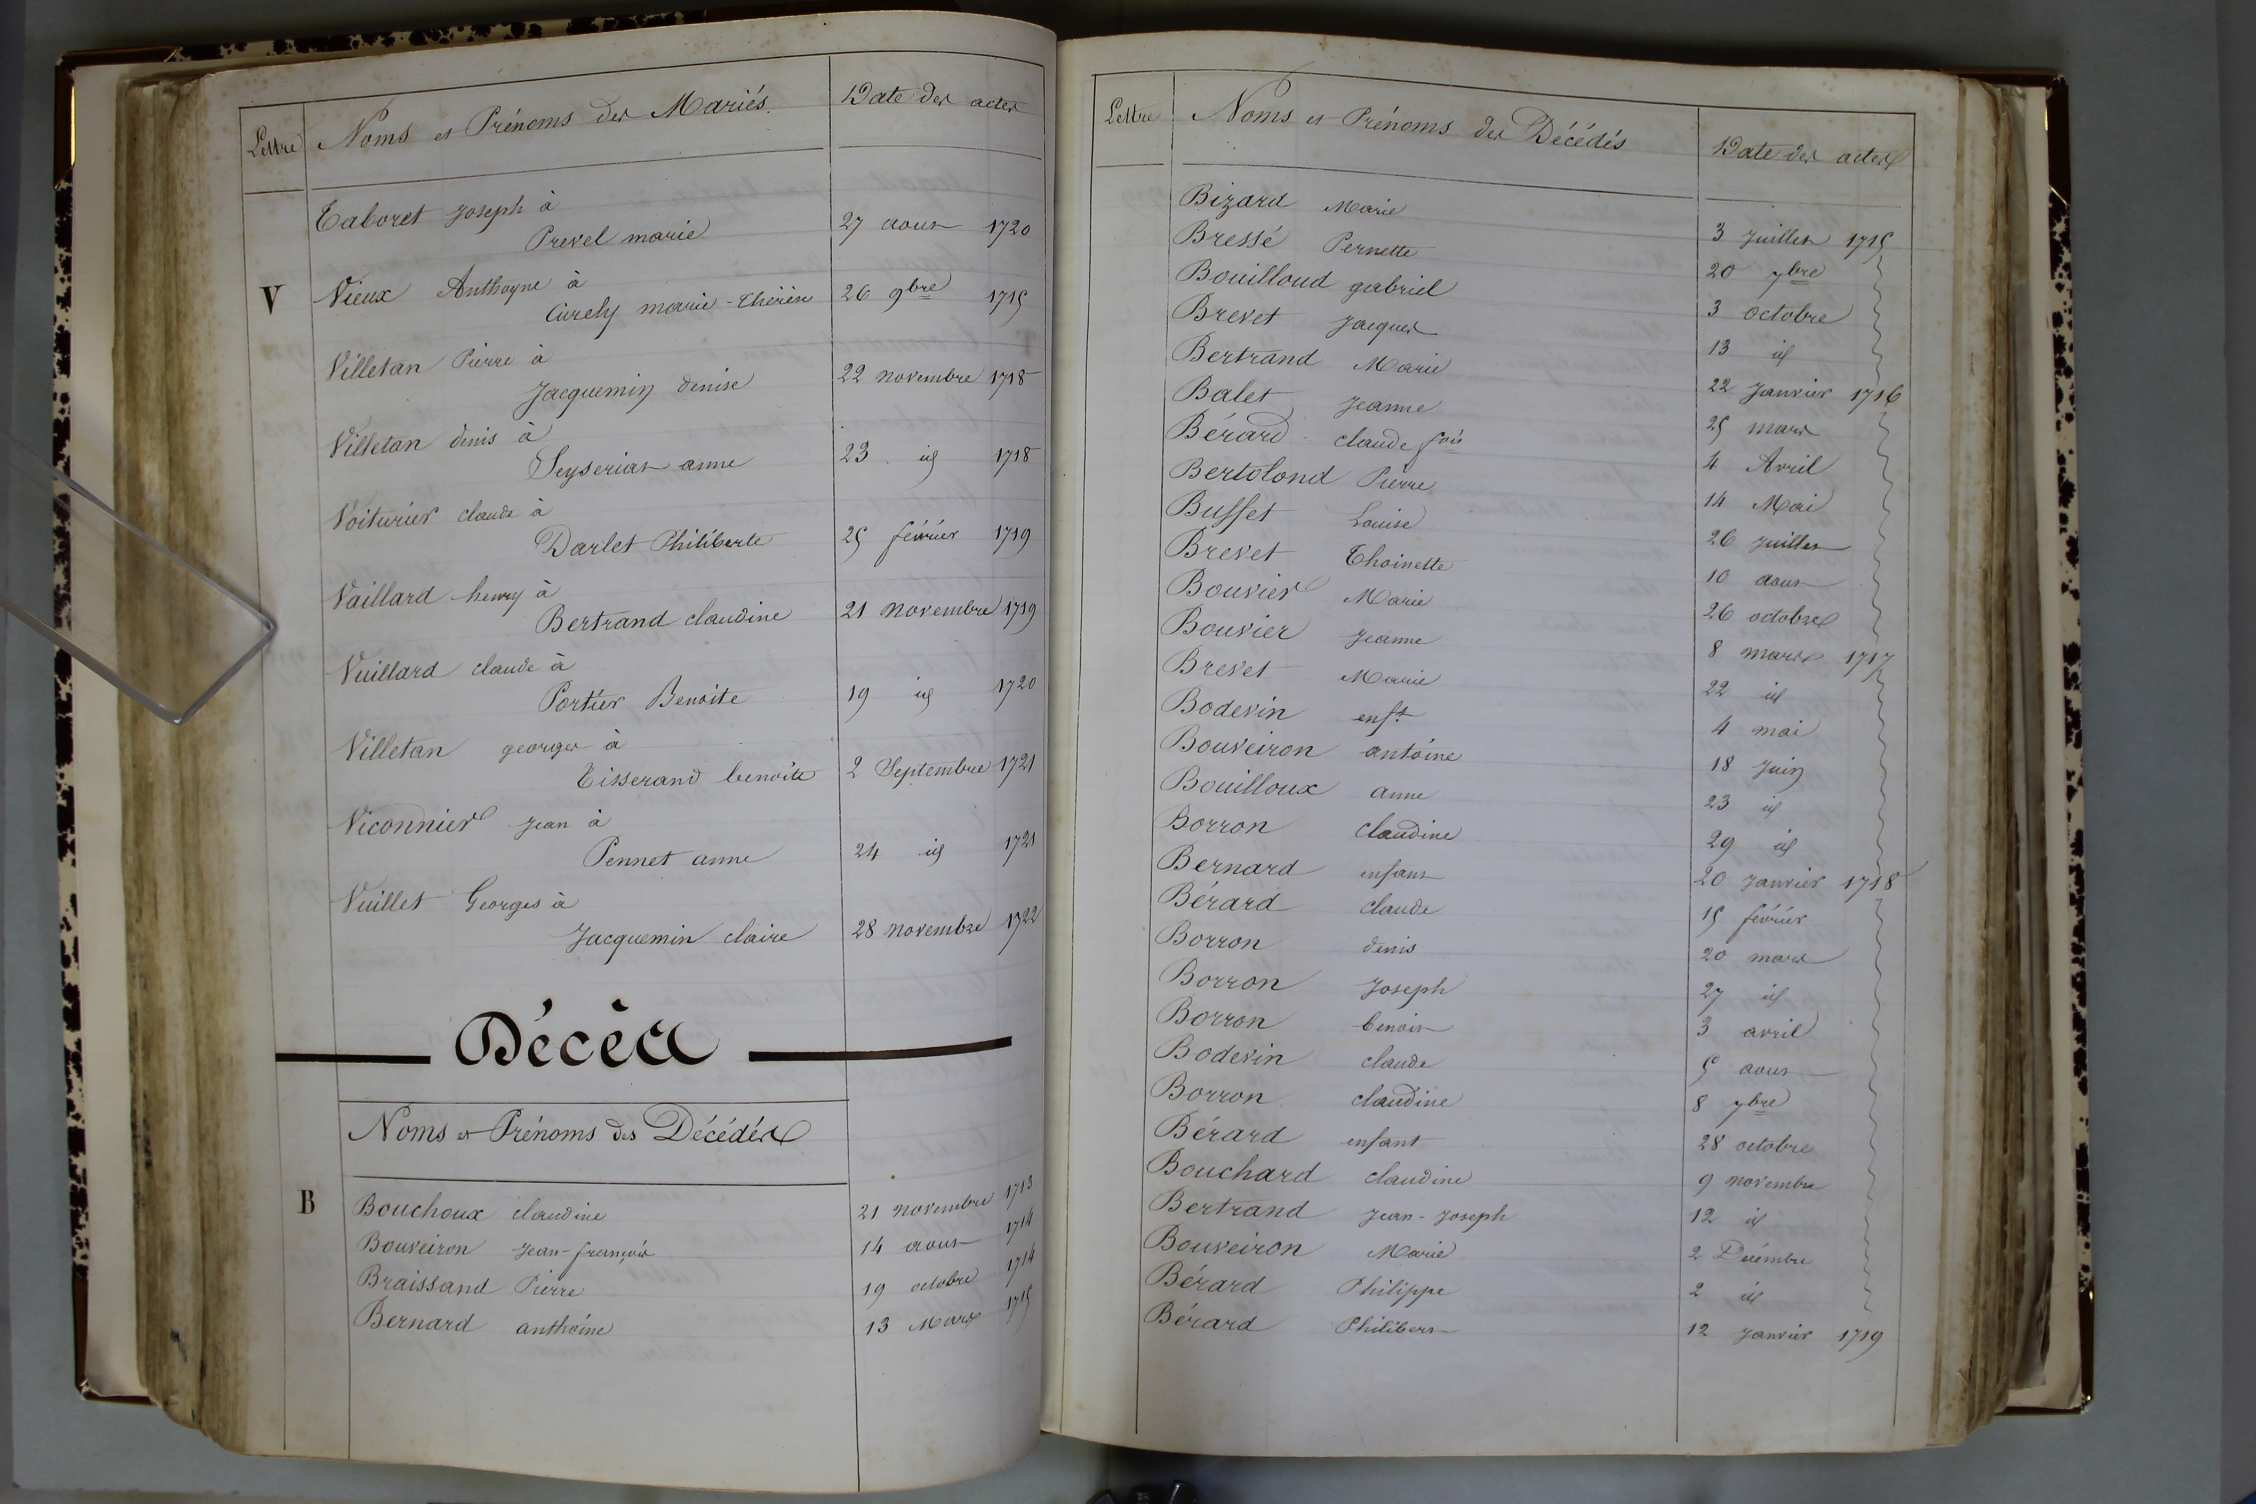 Lettre Noms et Prénoms des Mariés. Date des actes
Taboret Joseph à
Prevel marie 27 aout 1720
V Vieux Anthoyne à
Curely marie-thérèse 26 9bre 1715
Villetan Pierre à
Jacquemin denise 22 novembre 1718
Villetan denis à
Seyseriat anne 23 id 1718
Voiturier claude à
Darlet Philiberte 25 février 1719
Vaillard henry à
Bertrand claudine 21 novembre 1719
Vuillard claude à
Portier Benoite 19 id 1720
Villetan georges à
Tisserand benoite 2 Septembre 1721
Viconnier Jean à
Pennet anne 24 id 1721
Vuillet Georges à
Jacquemin claire 28 novembre 1722
Décès
Noms et Prénoms des Décédés
B Bouchoux claudine 21 novembre 1713
Bouveiron Jean-françois 14 aout 1714
Braissand Pierre 19 octobre 1714
Bernard anthoine 13 Mars 1715
Lettre Noms et Prénoms des Décédés Date des actes
Bizard Marie 3 Juillet 1715
Bressé Pernette 20 7bre
Bouilloud gabriel 3 octobre
Brevet Jacques 13 id
Bertrand Marie 22 Janvier 1716
Balet Jeanne 25 mars
Bérard claude fois 4 Avril
Bertolond Pierre 14 Mai
Buffet Louise 26 Juillet
Brevet Thoinette 10 aout
Bouvier Marie 26 octobre
Bouvier Jeanne 8 mars 1717
Brevet Marie 22 id
Bodevin enft 4 mai
Bouveiron antoine 18 Juin
Bouilloux anne 23 id
Borron claudine 29 id
Bernard enfant 20 Janvier 1718
Bérard claude 15 février
Borron denis 20 mars
Borron Joseph 27 id
Borron benoit 3 avril
Bodevin claude 5 aout
Borron claudine 8 7bre
Bérard enfant 28 octobre
Bouchard claudine 9 novembre
Bertrand Jean-Joseph 12 id
Bouveiron Marie 2 Décembre
Bérard Philippe 2 id
Bérard Philibert 12 Janvier 1719